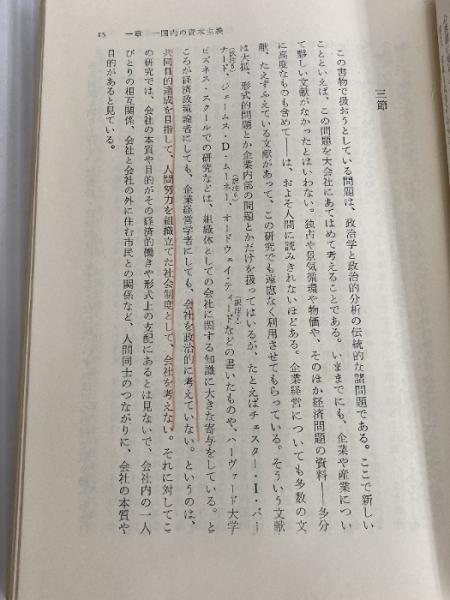 15　一章　一国内の資本主義
三節
この書物で扱おうとしている問題は、政治学と政治的分析の伝統的な諸問題である。ここで新しい
ことといえば、この問題を大会社にあてはめて考えることである。いままでにも、企業や産業につい
て難しい文献がなかったとはいわない。独占や景気循環や物価や、そのほか経済問題の資料——多分
に高度なものも含めて——は、およそ人間に読みきれないほどある。企業経営についても多数の文
献、たえずふえている文献があって、この研究でも遠慮なく利用させてもらっている。そういう文献
は大抵、形式的問題とか企業内部の問題とかだけを扱ってはいるが、たとえばチェスター・I・バー
ナード、ジェームス・D・ムーネー、オードウェイ・ティードなどの書いたものや、ハーヴァード大学
ビズネス・スクールでの研究などは、組織体としての会社に関する知識に大きな寄与をしている。と
ころが経済政策論者にしても、企業経営学者にしても、会社を政治的に考えていない。というのは、
共同目的達成を目指して、人間努力を組織立てた社会制度として、会社を考えない。それに対してこ
の研究では、会社の本質や目的がその経済的働きや形式上の支配にあるとは見ないで、会社内の一人
びとりの相互関係、会社と会社の外に住む市民との関係など、人間同士のつながりに、会社の本質や
目的があると見ている。